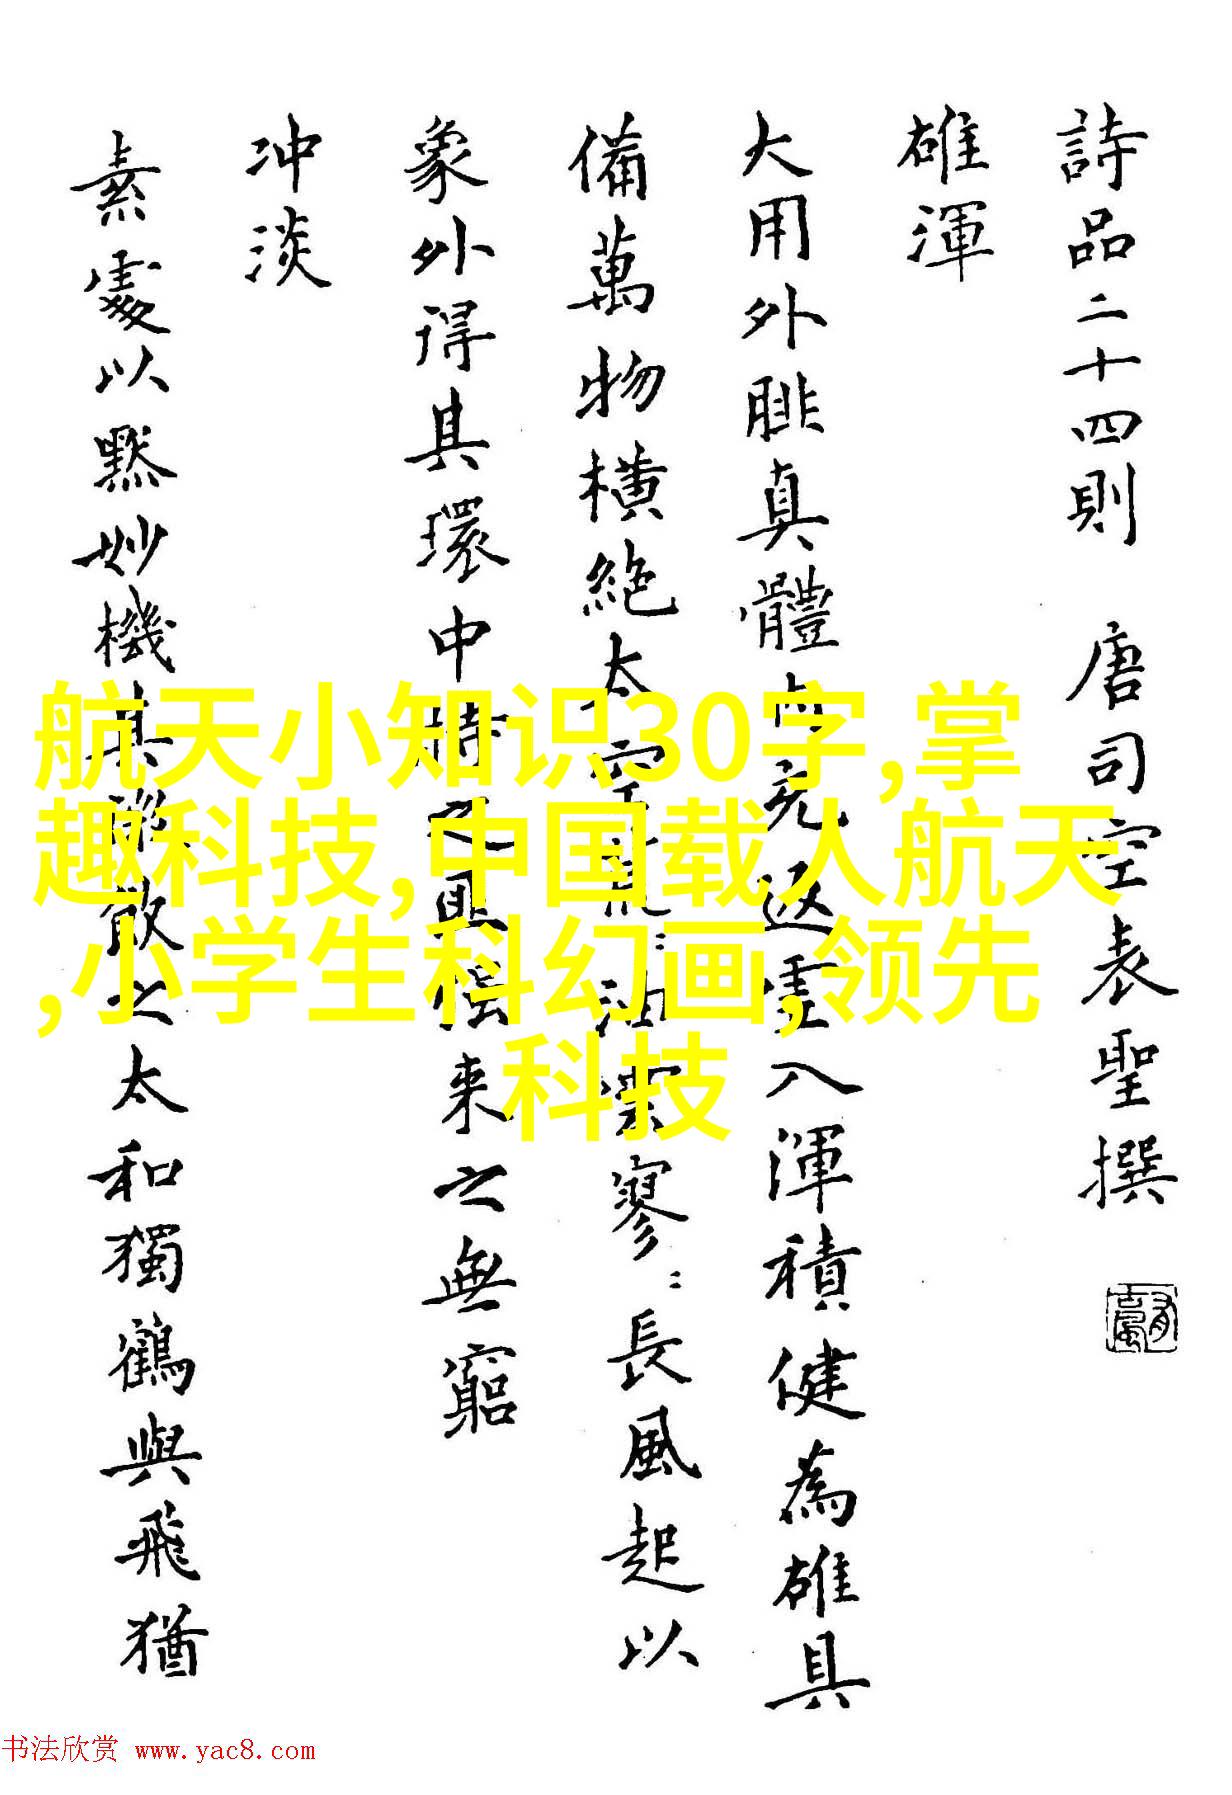 詩品二十四則 唐司空表聖撰
雄渾
大用外腓真體內充返虛入渾積健為雄具
備萬物橫絕太空荒油雲寥長風起以
象外得其環中持之匪強來之無窮
冲淡
素處以默妙機其微飲之太和獨鶴與飛猶
航天小知识30字,掌
趣科技,中国载人航天
,小学生科幻画,领先
科技
书法欣赏 www.yac8.com